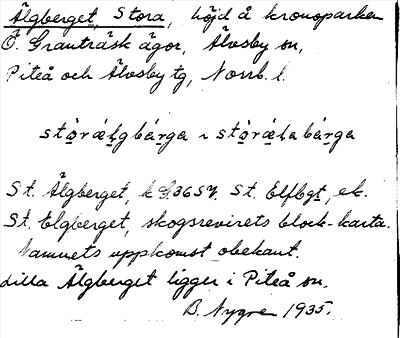 Älgberget, Stora, höjd å kronoparken
Ö. Granträsk ägor, Älvsby sn,
Piteå och Älvsby tg, Norrb. l.
stòrǽlgbárga ~ stòrǽlabárga
St. Älgberget, k St. Elfbgt, ek.
St. Elgberget, skogsrevirets block-karta.
Namnets uppkomst obekant.
Lilla Älgberget ligger i Piteå sn.
B. Nygren 1935.